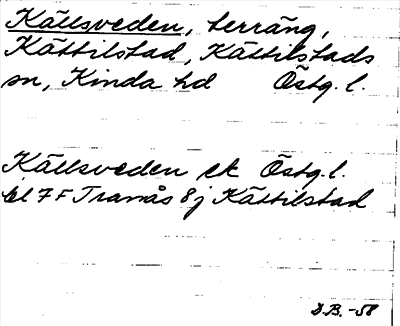 Källsveden, terräng,
Kättilstad, Kättilstads
sn, Kinda hd Östg. l.
Källsveden ek Östg. l.
bl 7 F Tranås 8 j Kättilstad
D.B. -58